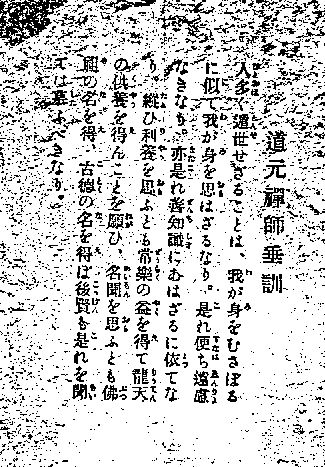 道元禪師垂訓
人多く遁世せざることは、我が身をむさぼる
に似て我が身を思はざるなり。是れ便ち遠慮
なきなり。亦是れ善知識にあはざるに依てな
り。縱ひ利養を思ふとも常樂の益を得て龍天
の供養を得んことを願ひ、名聞を思ふとも佛
祖の名を得、古德の名を得ば後賢も是れを聞
ては慕ふべきなり。